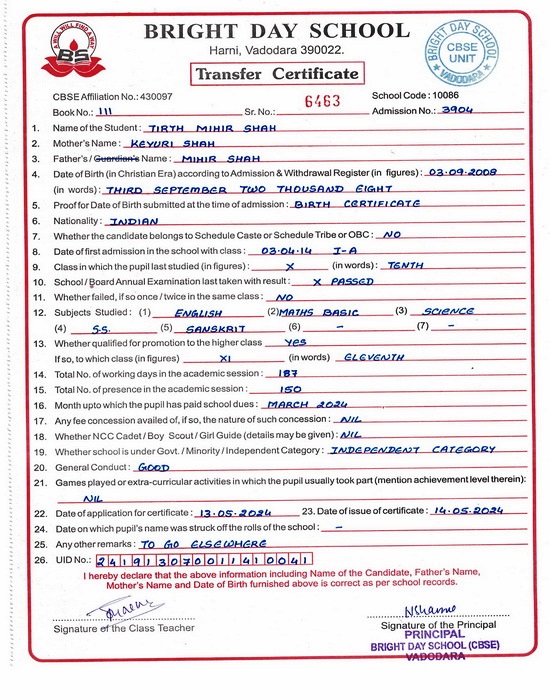 A WILL WILL FIND A WAY
BS
BRIGHT DAY SCHOOL
Harni, Vadodara 390022.
Transfer Certificate
BRIGHT DAY SCHOOL
CBSE
UNIT
VADODARA
CBSE Affiliation No.: 430097 6463 School Code : 10086
Book No.: III Sr. No.: Admission No.: 3904
1. Name of the Student : TIRTH MIHIR SHAH
2. Mother's Name : KEYURI SHAH
3. Father's / Guardian's Name : MIHIR SHAH
4. Date of Birth (in Christian Era) according to Admission & Withdrawal Register (in figures) : 03-09-2008
(in words) : THIRD SEPTEMBER TWO THOUSAND EIGHT
5. Proof for Date of Birth submitted at the time of admission : BIRTH CERTIFICATE
6. Nationality : INDIAN
7. Whether the candidate belongs to Schedule Caste or Schedule Tribe or OBC : NO
8. Date of first admission in the school with class : 03-04-14 I-A
9. Class in which the pupil last studied (in figures) : X (in words) : TENTH
10. School / Board Annual Examination last taken with result : X PASSED
11. Whether failed, if so once / twice in the same class : NO
12. Subjects Studied : (1) ENGLISH (2) MATHS BASIC (3) SCIENCE
(4) S.S. (5) SANSKRIT (6) – (7) –
13. Whether qualified for promotion to the higher class Yes
If so, to which class (in figures) XI (in words) ELEVENTH
14. Total No. of working days in the academic session : 187
15. Total No. of presence in the academic session : 150
16. Month upto which the pupil has paid school dues : MARCH 2024
17. Any fee concession availed of, if so, the nature of such concession : NIL
18. Whether NCC Cadet / Boy Scout / Girl Guide (details may be given) : NIL
19. Whether school is under Govt. / Minority / Independent Category : INDEPENDENT CATEGORY
20. General Conduct : GOOD
21. Games played or extra-curricular activities in which the pupil usually took part (mention achievement level therein):
NIL
22. Date of application for certificate : 13-05-2024 23. Date of issue of certificate : 14-05-2024
24. Date on which pupil's name was struck off the rolls of the school : –
25. Any other remarks : TO GO ELSEWHERE
26. UID No.: 241913070011410041
I hereby declare that the above information including Name of the Candidate, Father's Name,
Mother's Name and Date of Birth furnished above is correct as per school records.
Signature of the Class Teacher
Signature of the Principal
PRINCIPAL
BRIGHT DAY SCHOOL (CBSE)
VADODARA